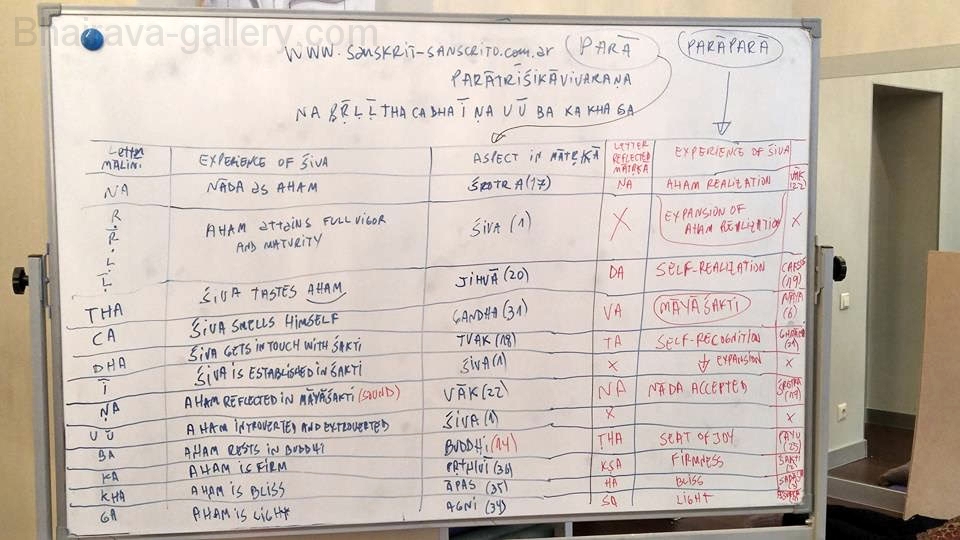 Bhairava-gallery.com
www.sanskrit-sanscrito.com.ar PARĀ PARĀPARĀ
PARĀTRĪŚIKĀVIVARAṆA
NA ṚṜḶḸ THA CA DHA Ī ṆA U Ū BA KA KHA GA
LETTER MALINI EXPERIENCE OF ŚIVA ASPECT IN MĀTṚKĀ LETTER REFLECTED MĀTṚKĀ EXPERIENCE OF ŚIVA
NA NĀDA as AHAM ŚROTRA (17) NA AHAM REALIZATION VĀK (22)
Ṛ Ṝ Ḷ Ḹ AHAM attains FULL VIGOR AND MATURITY ŚIVA (1) X EXPANSION OF AHAM REALIZATION X
THA ŚIVA TASTES AHAM JIHVĀ (20) DA SELF-REALIZATION (19)
CA ŚIVA SMELLS HIMSELF GANDHA (31) VA MĀYĀŚAKTI MĀYĀ (6)
DHA ŚIVA GETS IN TOUCH WITH ŚAKTI TVAK (18) TA SELF-RECOGNITION
Ī ŚIVA IS ESTABLISHED IN ŚAKTI ŚIVA (1) X EXPANSION X
ṆA AHAM REFLECTED IN MĀYĀŚAKTI (SOUND) VĀK (22) NA NĀDA ACCEPTED ŚROTRA
U Ū AHAM INTROVERTED AND EXTROVERTED ŚIVA (1) X X
BA AHAM RESTS IN BUDDHI BUDDHI (14) ṬHA SEAT OF JOY PĀYU (25)
KA AHAM IS FIRM PṚTHIVĪ (36) KṢA FIRMNESS ŚAKTI
KHA AHAM IS BLISS ĀPAS (35) HA BLISS
GA AHAM IS LIGHT AGNI (34) SA LIGHT